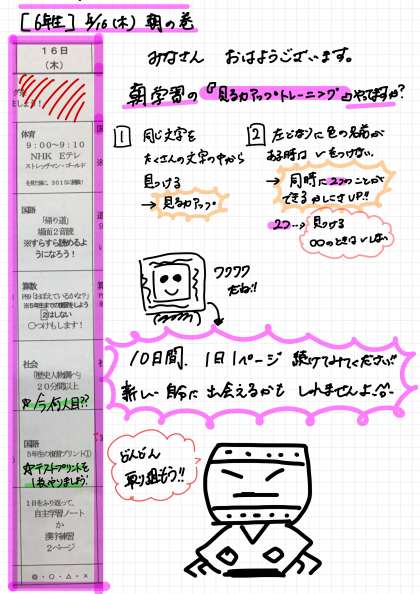 [6年生] 4/16 (木) 朝の巻
みなさん おはようございます。
朝学習の『見る力アップトレーニング』はやってますか?
1 同じ文字を
たくさんの文字の中から
見つける
→ 見る力アップ
2
ある時は ✓をつけない。
→ 同時に2つのことが
できる力がUP!!
2つ…→ 見つける
○○のときは✓しない
ワクワク
だね!!
10日間、1日1ページ 続けてみてください!!
新しい自分に出会えるかもしれませんよ!
どんどん
取り組もう!!
16日
(木)
体育
9:00~9:10
NHK Eテレ
ストレッチマン・ゴールド
国語
「帰り道」
場面2音読
※すらすら読めるよ
うになろう!
算数
P19「おぼえているかな?」
※5年生までの復習をしよう
2はしない
○つけもします!
社会
「歴史人物調べ」
20分間以上
☆今何人目??
国語
5年生の復習プリント①
☆テストプリントを
1枚やりましょう!
1日をふり返って、
自主学習ノート
か
漢字練習
2ページ
◎・○・△・×